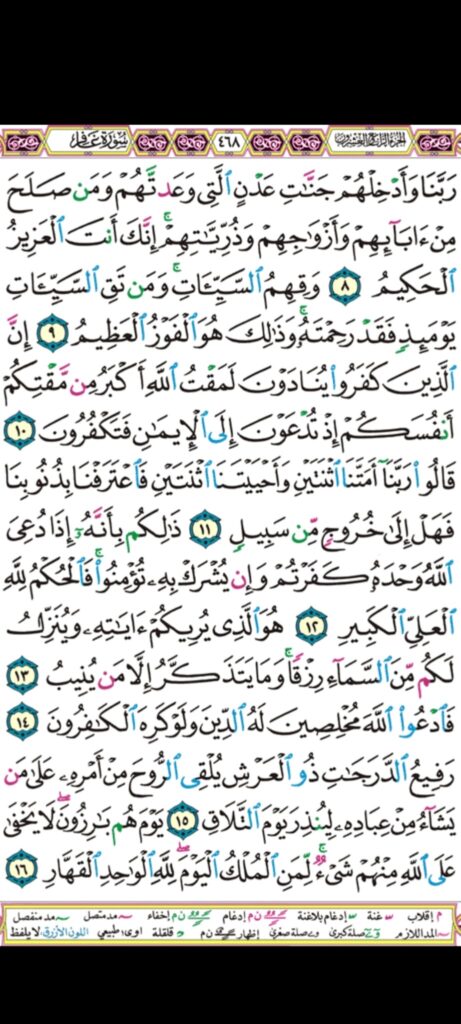 الجزء الرابع والعشرون ٤٦٨ سورة غافر
رَبَّنَا وَأَدْخِلْهُمْ جَنَّٰتِ عَدْنٍ ٱلَّتِى وَعَدتَّهُمْ وَمَن صَلَحَ
مِنْ ءَابَآئِهِمْ وَأَزْوَٰجِهِمْ وَذُرِّيَّٰتِهِمْ ۚ إِنَّكَ أَنتَ ٱلْعَزِيزُ
ٱلْحَكِيمُ ٨ وَقِهِمُ ٱلسَّيِّـَٔاتِ ۚ وَمَن تَقِ ٱلسَّيِّـَٔاتِ
يَوْمَئِذٍ فَقَدْ رَحِمْتَهُۥ ۚ وَذَٰلِكَ هُوَ ٱلْفَوْزُ ٱلْعَظِيمُ ٩ إِنَّ
ٱلَّذِينَ كَفَرُوا۟ يُنَادَوْنَ لَمَقْتُ ٱللَّهِ أَكْبَرُ مِن مَّقْتِكُمْ
أَنفُسَكُمْ إِذْ تُدْعَوْنَ إِلَى ٱلْإِيمَٰنِ فَتَكْفُرُونَ ١٠
قَالُوا۟ رَبَّنَآ أَمَتَّنَا ٱثْنَتَيْنِ وَأَحْيَيْتَنَا ٱثْنَتَيْنِ فَٱعْتَرَفْنَا بِذُنُوبِنَا
فَهَلْ إِلَىٰ خُرُوجٍ مِّن سَبِيلٍ ١١ ذَٰلِكُم بِأَنَّهُۥٓ إِذَا دُعِىَ
ٱللَّهُ وَحْدَهُۥ كَفَرْتُمْ ۖ وَإِن يُشْرَكْ بِهِۦ تُؤْمِنُوا۟ ۚ فَٱلْحُكْمُ لِلَّهِ
ٱلْعَلِىِّ ٱلْكَبِيرِ ١٢ هُوَ ٱلَّذِى يُرِيكُمْ ءَايَٰتِهِۦ وَيُنَزِّلُ
لَكُم مِّنَ ٱلسَّمَآءِ رِزْقًا ۚ وَمَا يَتَذَكَّرُ إِلَّا مَن يُنِيبُ ١٣
فَٱدْعُوا۟ ٱللَّهَ مُخْلِصِينَ لَهُ ٱلدِّينَ وَلَوْ كَرِهَ ٱلْكَٰفِرُونَ ١٤
رَفِيعُ ٱلدَّرَجَٰتِ ذُو ٱلْعَرْشِ يُلْقِى ٱلرُّوحَ مِنْ أَمْرِهِۦ عَلَىٰ مَن
يَشَآءُ مِنْ عِبَادِهِۦ لِيُنذِرَ يَوْمَ ٱلتَّلَاقِ ١٥ يَوْمَ هُم بَٰرِزُونَ ۖ لَا يَخْفَىٰ
عَلَى ٱللَّهِ مِنْهُمْ شَىْءٌ ۚ لِّمَنِ ٱلْمُلْكُ ٱلْيَوْمَ ۖ لِلَّهِ ٱلْوَٰحِدِ ٱلْقَهَّارِ ١٦
م إقلاب غنة إدغام بلاغنة ن م إدغام ن م إخفاء مد متصل مد منفصل
المد اللازم صلة كبرى صلة صغرى إظهار ن م قلقلة اوى: طبيعي اللون الأزرق: لا يلفظ